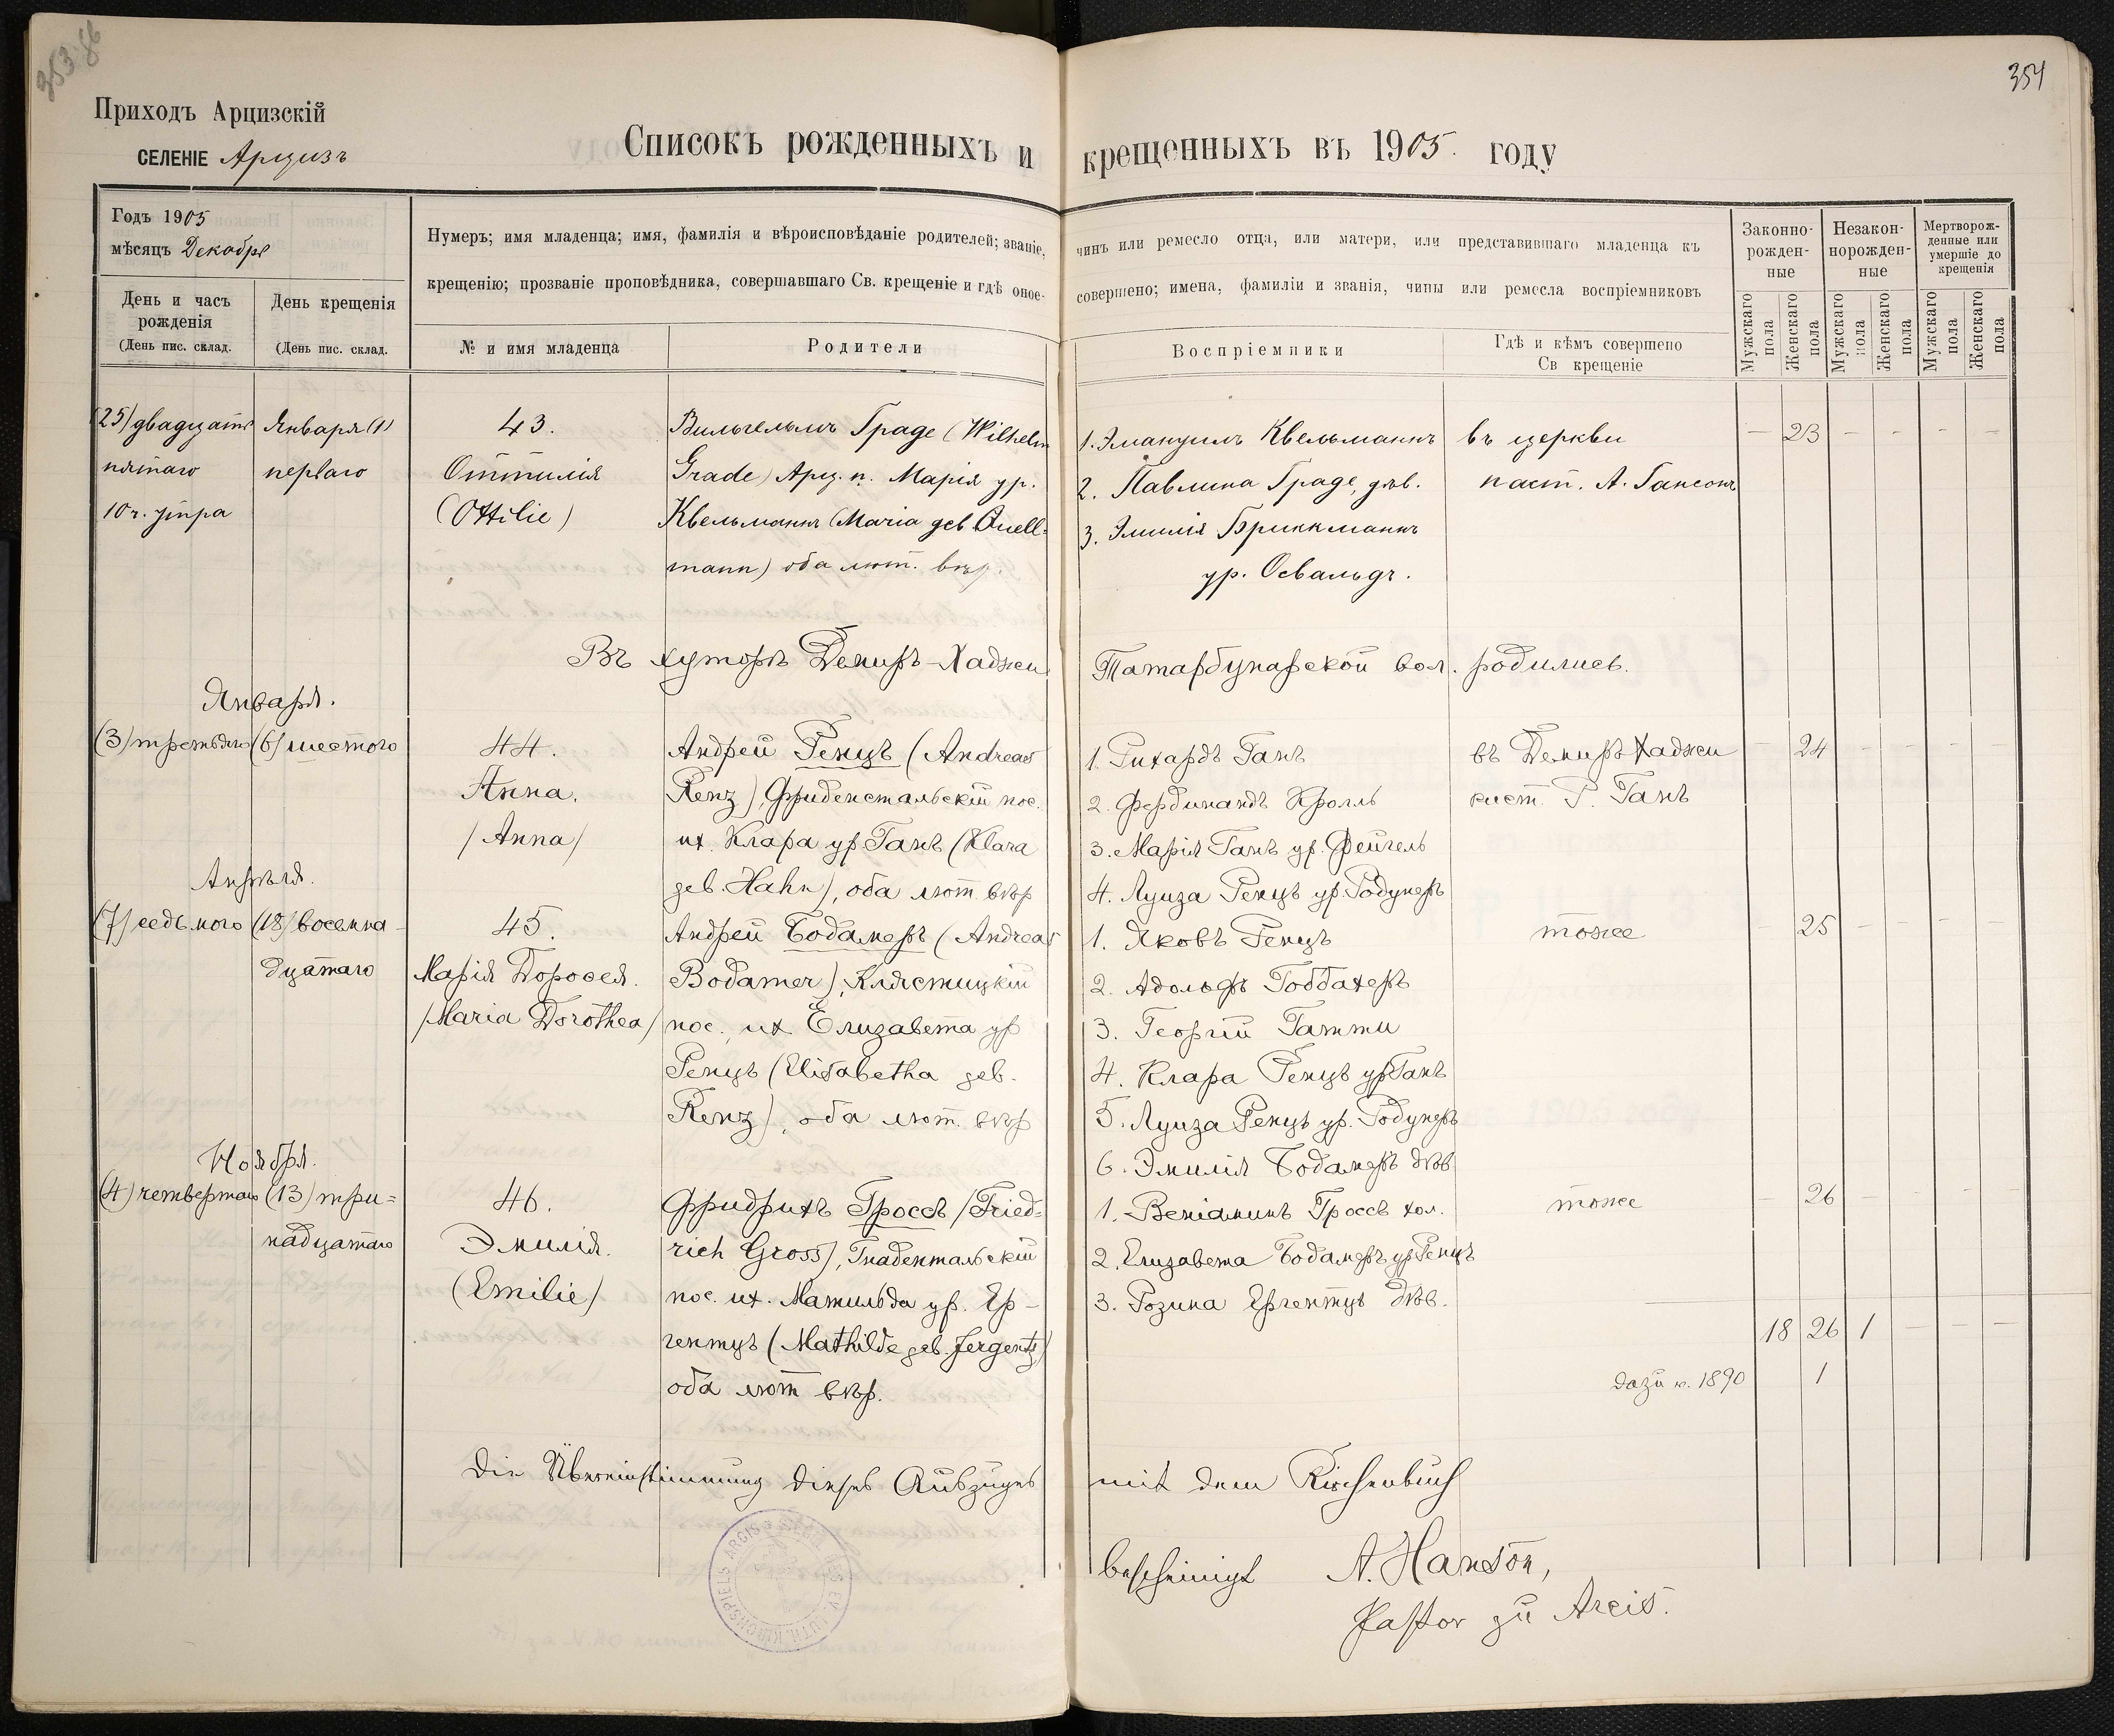 353 об
354
Приходъ Арцизскій
СЕЛЕНІЕ Арцизъ
Списокъ рожденныхъ и крещенныхъ въ 1905 году
Годъ 1905
мѣсяцъ Декабря
Нумеръ; имя младенца; имя, фамилія и вѣроисповѣданіе родителей; званіе, чинъ или ремесло отца, или матери, или представившаго младенца къ
крещенію; прозваніе проповѣдника, совершавшаго Св. крещеніе и гдѣ оное совершено; имена, фамиліи и званія, чины или ремесла воспріемниковъ
Законно-рожден-ные
Незакон-норожден-ные
Мертворож-денные или умершіе до крещенія
День и часъ рожденія
(День пис. склад.
День крещенія
(День пис. склад.
№ и имя младенца
Родители
Воспріемники
Гдѣ и кѣмъ совершено
Св крещеніе
Мужскаго пола
Женскаго пола
Мужскаго пола
Женскаго пола
Мужскаго пола
Женскаго пола
(25) двадцать Января (1) 43. Вильгельмъ Граде (Wilhelm 1. Эмануилъ Квельманнъ въ церкви — 23 — — — —
пятаго перваго Оттилія Grade) Арц. п. Марія ур. 2. Павлина Граде, дѣв. паст. А. Гансонъ
10 ч. утра (Ottilie) Квельманнъ (Maria geb. Quell- 3. Эмилія Бриккманнъ
mann) оба лют. вѣр. ур. Освальдъ.
Въ хуторѣ Демиръ-Хаджи Татарбунарской вол. родились.
Января.
(3) третьяго (6) шестого 44. Андрей Ренцъ (Andreas 1. Рихардъ Ганъ въ Демиръ Хаджи — 24 — — — —
Анна. Renz), Фриденстальскій пос. 2. Фердинандъ Кролль кист. Р. Ганъ
/Anna/ их. Клара ур Ганъ (Klara 3. Марія Ганъ ур. Фейгель
geb. Hahn), оба лют. вѣр 4. Луиза Ренцъ ур. Родунеръ
Апрѣля.
(7) седьмого (18) восемна- 45. Андрей Бодамеръ (Andreas 1. Яковъ Ренцъ тоже — 25 — — — —
дцатаго Марія Доροѳея. Bodamer), Клястицкій 2. Адольфъ Роббахеръ
/Maria Dorothea/ пос., их Елизавета ур 3. Георгій
Ренцъ (Elisabetha geb. 4. Клара Ренцъ ур Ганъ
Renz), оба лют. вѣр 5. Луиза Ренцъ ур. Родунеръ
6. Эмилія Бодамеръ дѣв.
Ноября.
(4) четвертаго (13) три= 46. Фридрихъ Гроссъ /Fried= 1. Веніаминъ Гроссъ хол. тоже — 26 — — — —
надцатаго Эмилія. rich Gross), Гнадентальскій 2. Елизавета Бодамеръ ур Ренцъ
(Emilie) пос. их. Матильда ур. Ер- 3. Розина Ергентцъ дѣв.
гентцъ (Mathilde geb. Jergentz) 18 26 1 — — —
оба лют вѣр. dazu 1890 1
Die Übereinstimmung dieses Auszuges mit dem Kirchenbuch
bescheinigt A. Hanson,
Pastor zu Arcis.